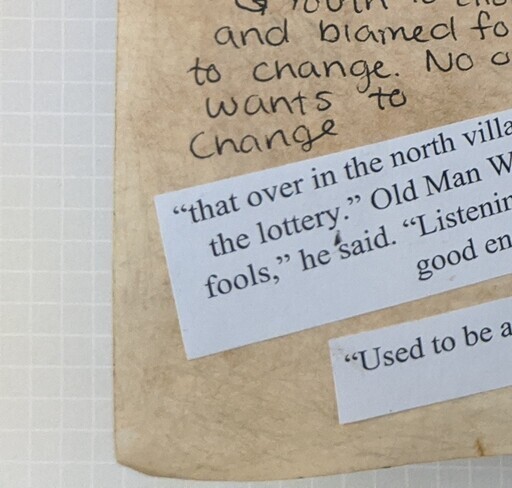 and blamed fo
to change. No o
wants to
change
"that over in the north villa
the lottery." Old Man W
fools," he said. "Listenin
good en
"Used to be a